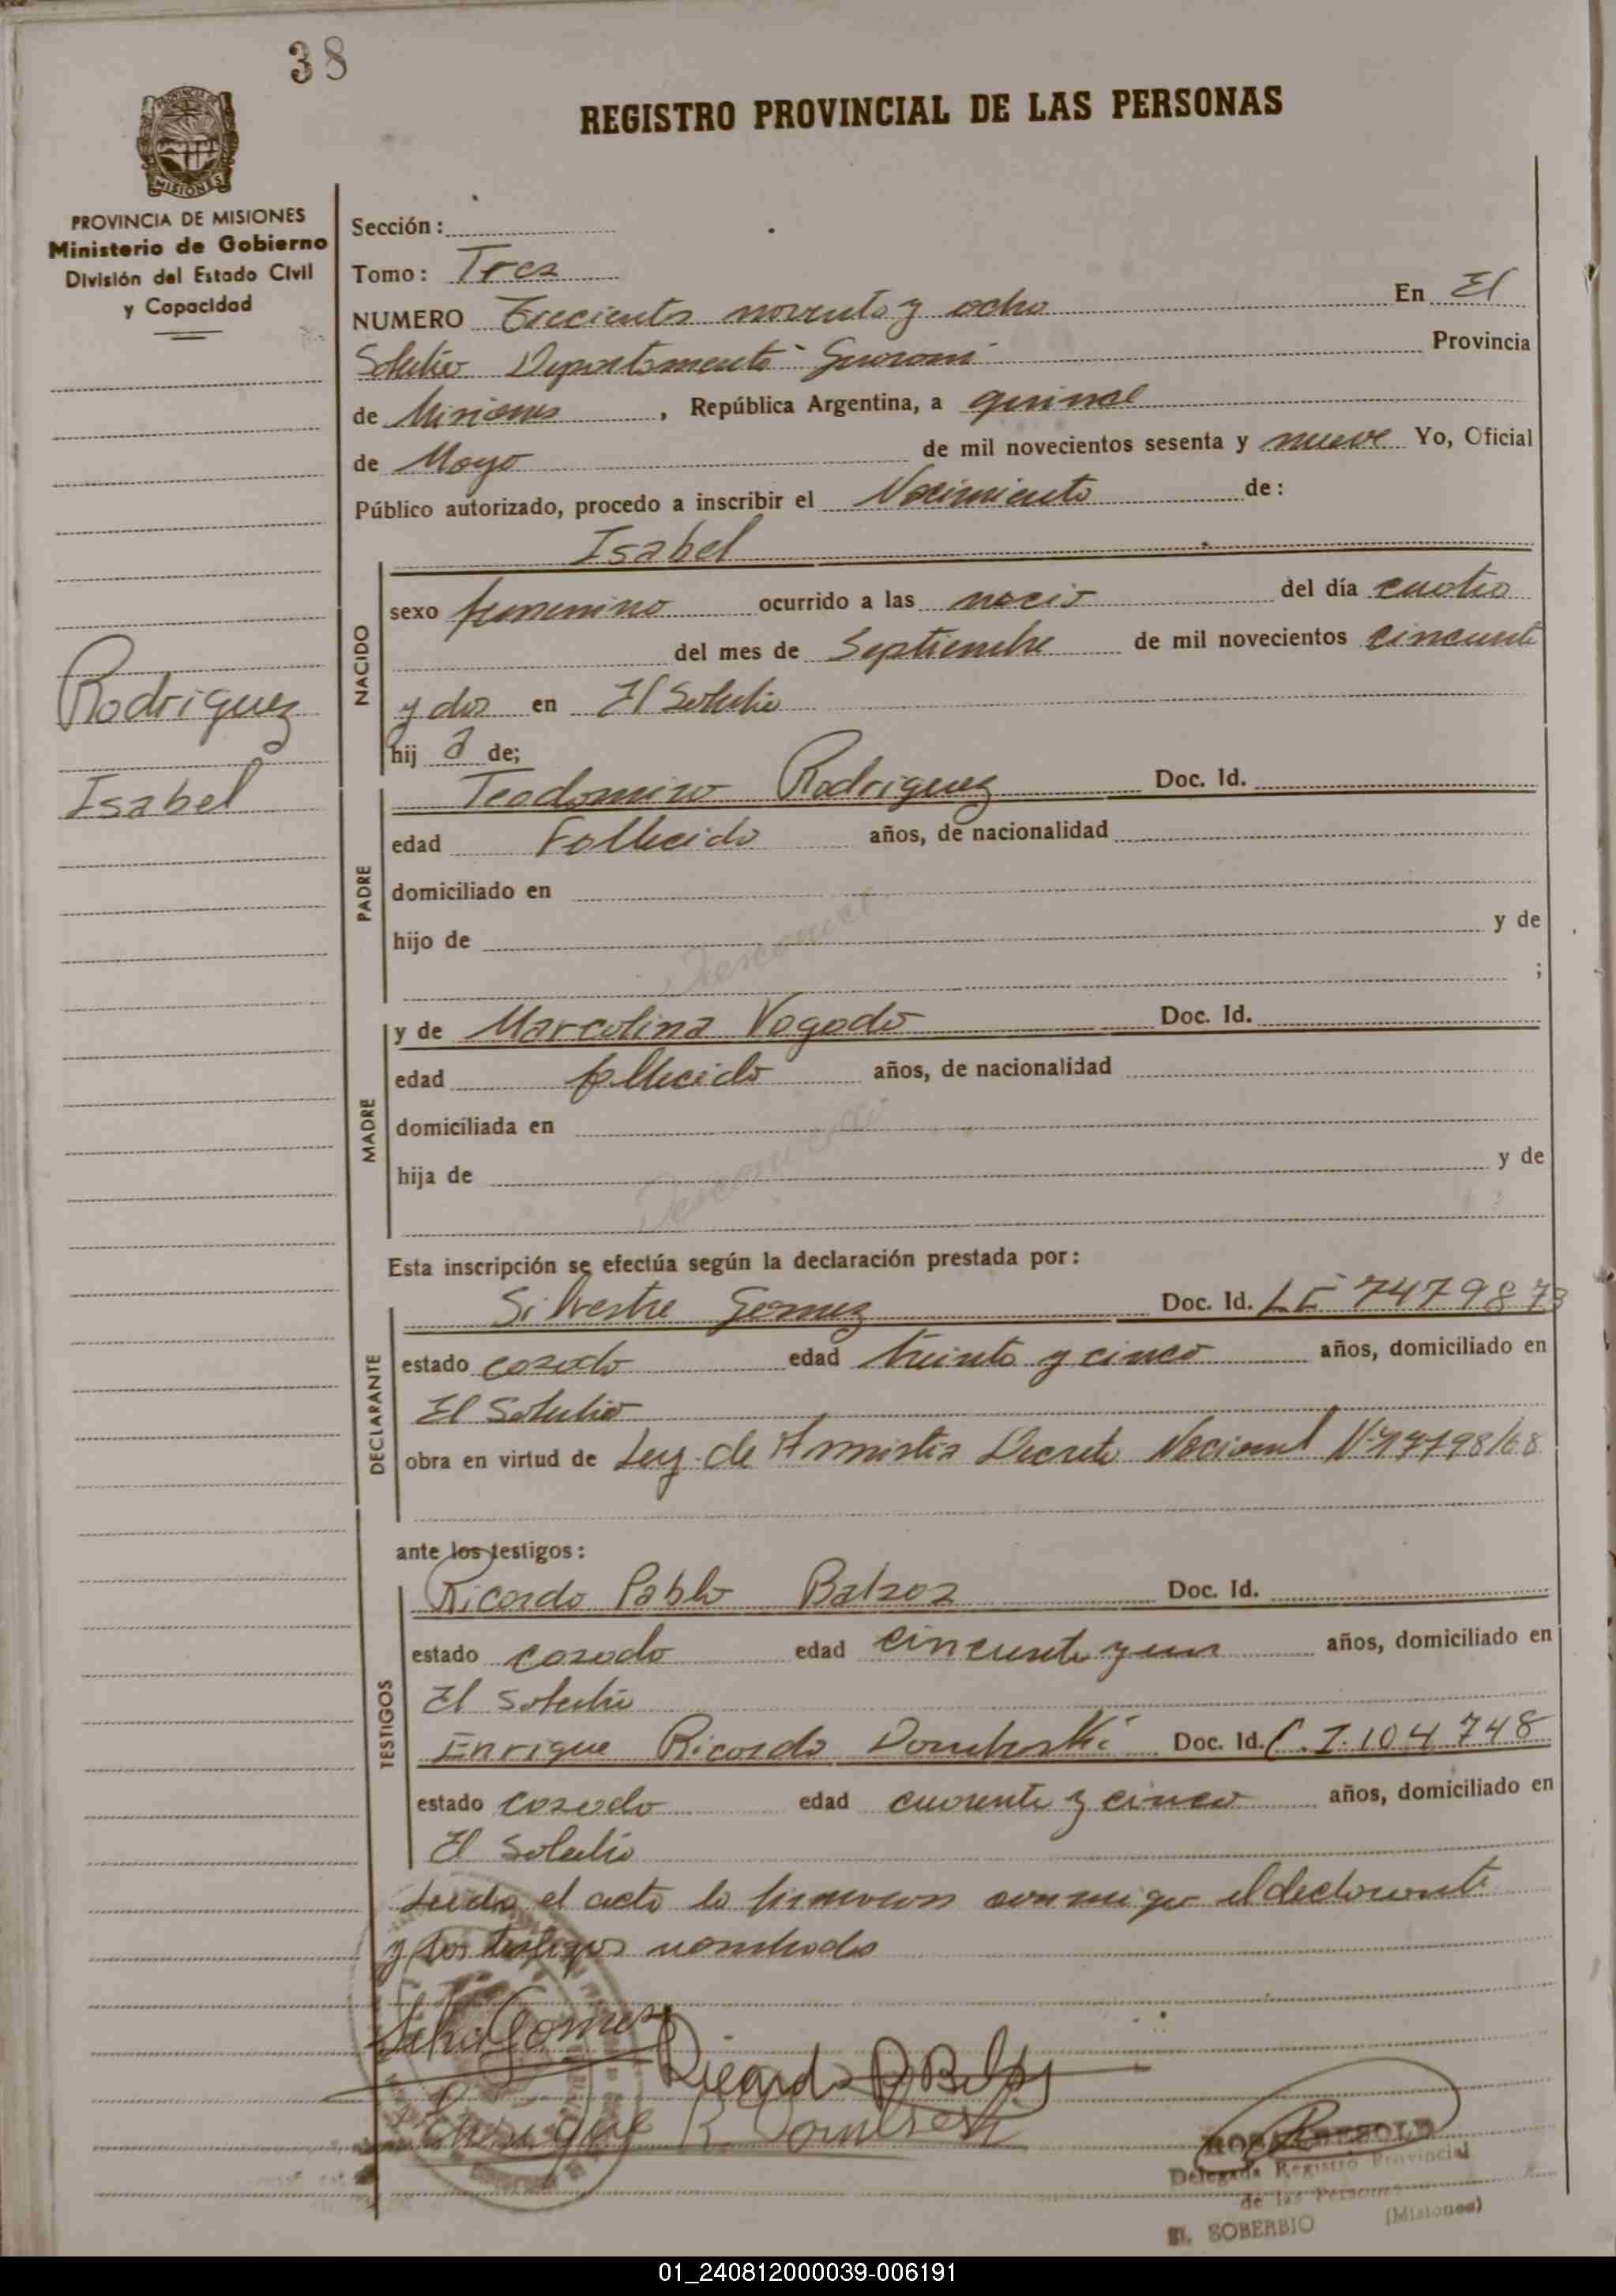 38
REGISTRO PROVINCIAL DE LAS PERSONAS
PROVINCIA DE MISIONES
MISIONES
PROVINCIA DE MISIONES
Ministerio de Gobierno
División del Estado Civil
y Capacidad
Rodriguez
Isabel
Sección:
Tomo: Tres
NUMERO Trecientos noventa y ocho En El
Soberbio Departamento Guarani Provincia
de Misiones, República Argentina, a quince
de Mayo de mil novecientos sesenta y nueve Yo, Oficial
Público autorizado, procedo a inscribir el Nacimiento de:
Isabel
NACIDO
sexo femenino ocurrido a las nacio del día cuatro
del mes de Septiembre de mil novecientos cincuenta
y dos en El Soberbio
hij a de;
PADRE
Teodomiro Rodriguez Doc. Id.
edad Fallecido años, de nacionalidad
domiciliado en
hijo de y de
;
MADRE
y de Marcolina Vogado Doc. Id.
edad fallecido años, de nacionalidad
domiciliada en
hija de y de
Esta inscripción se efectúa según la declaración prestada por:
DECLARANTE
Silvestre Gomez Doc. Id. LE 7479873
estado casado edad treinta y cinco años, domiciliado en
El Soberbio
obra en virtud de Ley de Amnistia Decreto Nacional
ante los testigos:
TESTIGOS
Ricardo Pablo Doc. Id.
estado casado edad cincuenta y un años, domiciliado en
El Soberbio
Enrique Ricardo Dombroski Doc. Id. C.I. 104748
estado casado edad cuarenta y cinco años, domiciliado en
El Soberbio
Leida el acta la firmaron conmigo el declarante
y los testigos nombrados
Gomez
Ricardo P
Enrique R. Dombroski
Delegada Registro Provincial
de las Personas
EL SOBERBIO (Misiones)
01_240812000039-006191